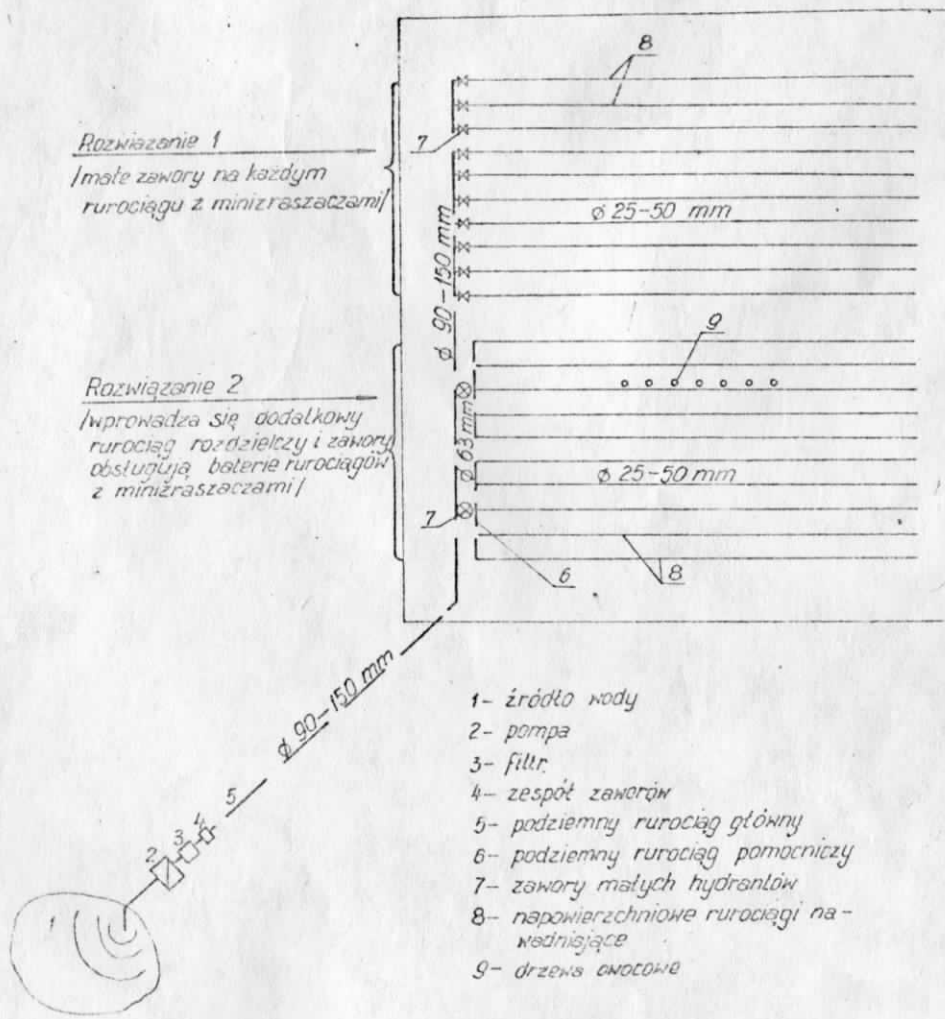 8
Rozwiązanie 1
/małe zawory na każdym
rurociągu z minizraszaczami/
7
ϕ 25-50 mm
ϕ 90-150 mm
9
Rozwiązanie 2
/wprowadza się dodatkowy
rurociąg rozdzielczy i zawory
obsługują baterie rurociągów
z minizraszaczami/
ϕ 63 mm
ϕ 25-50 mm
7
6
8
ϕ 90-150 mm
5
4
3
2
1
1- źródło wody
2- pompa
3- filtr
4- zespół zaworów
5- podziemny rurociąg główny
6- podziemny rurociąg pomocniczy
7- zawory małych hydrantów
8- napowierzchniowe rurociągi na-
wadniające
9- drzewa owocowe